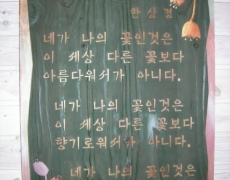 한상경
네가 나의 꽃인것은
이 세상 다른 꽃보다
아름다워서가 아니다.
네가 나의 꽃인것은
이 세상 다른 꽃보다
향기로워서가 아니다.
네가 나의 꽃인것은